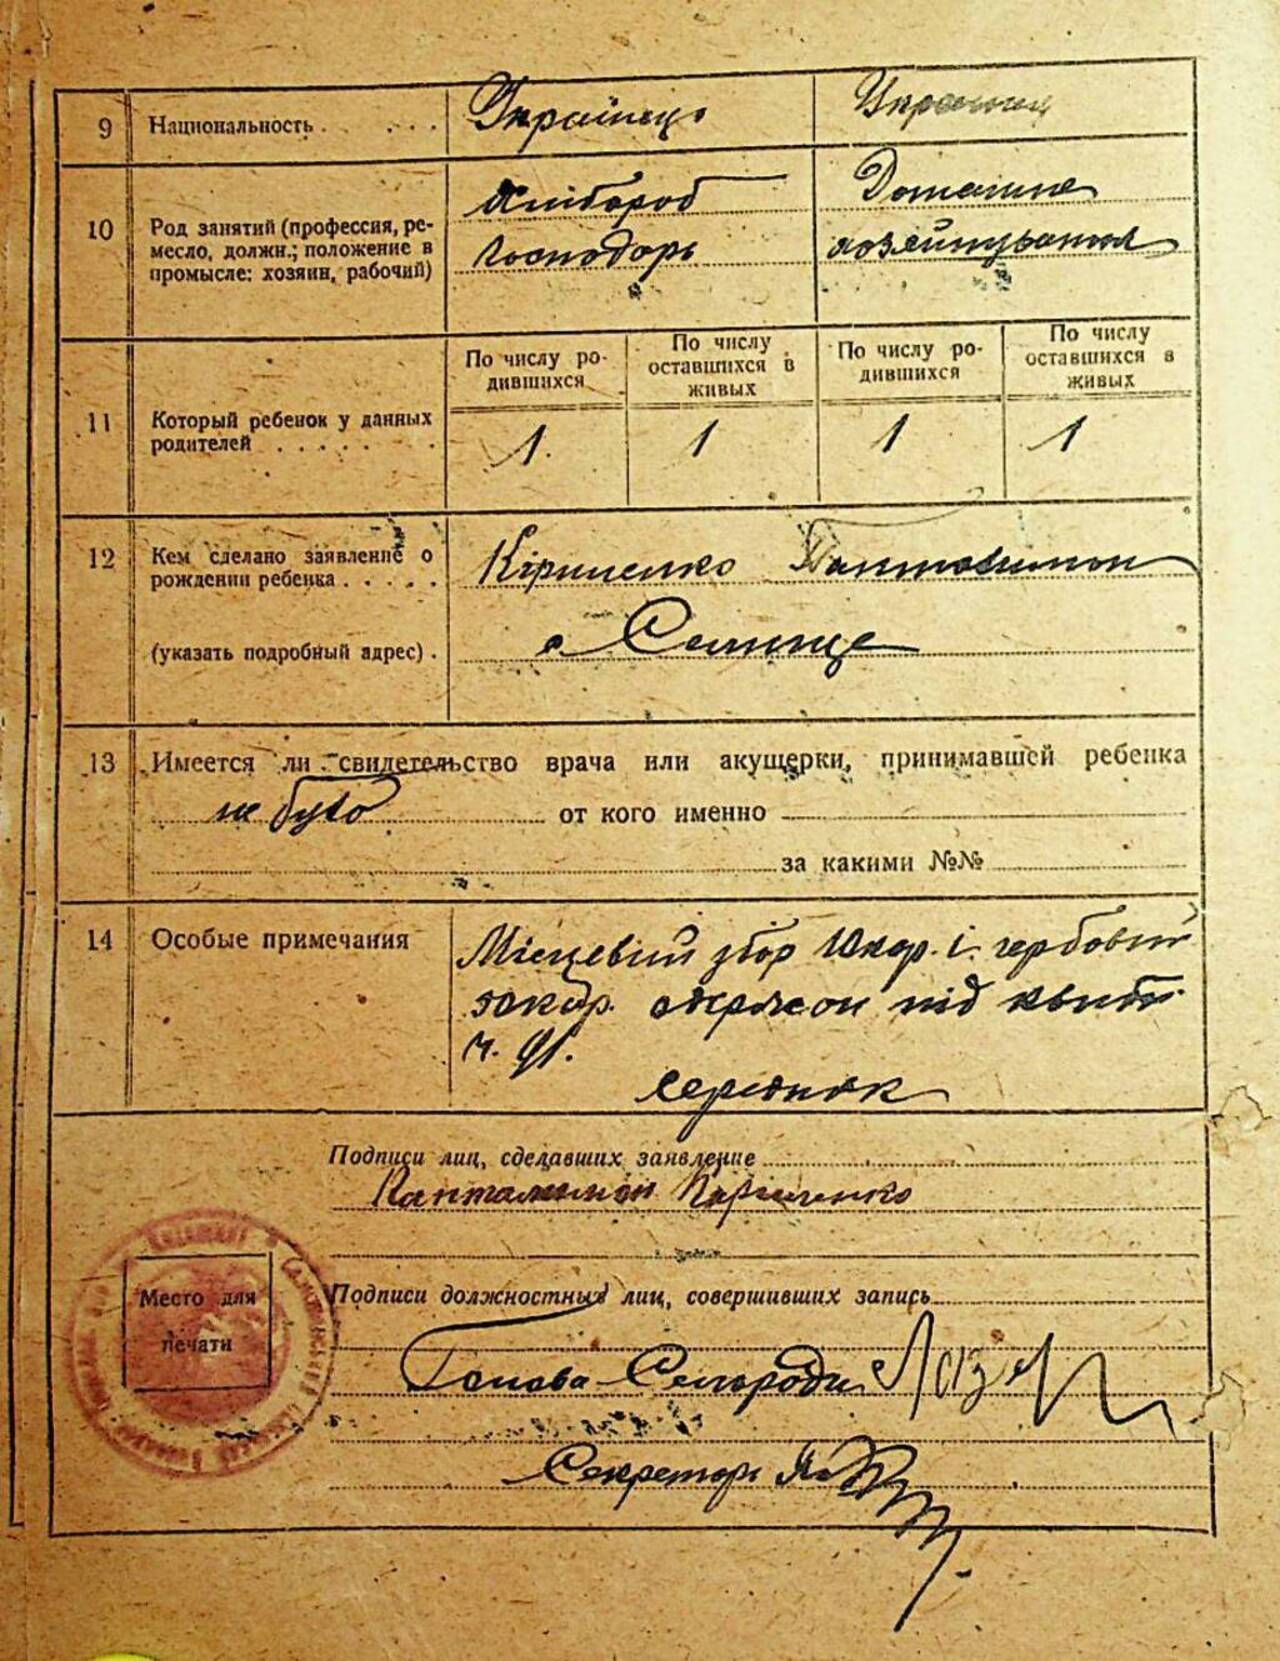 9 Национальность . . . . . Українець Украинка
10 Род занятий (профессия, ре-
месло, должн.; положение в
промысле: хозяин, рабочий)
Хлібороб Домашне
Господорь хозяйнування
По числу ро-
дившихся
По числу
оставшихся в
живых
По числу ро-
дившихся
По числу
оставшихся в
живых
11 Который ребенок у данных
родителей . . . . . .
1. 1 1 1
12 Кем сделано заявление о
рождении ребенка . . . . .
Кириченко Пантелимон
(указать подробный адрес) .
с Селище
13 Имеется ли свидетельство врача или акущерки, принимавшей ребенка
не було от кого именно
за какими №№
14 Особые примечания
Місцевий збір 10 кар. і гербовий
під квит.
ч. 91.
середняк
Подписи лиц, сделавших заявление
Панталимон Кириченко
Место для
печати
Подписи должностных лиц, совершивших запись
Голова Сельради
Секретарь